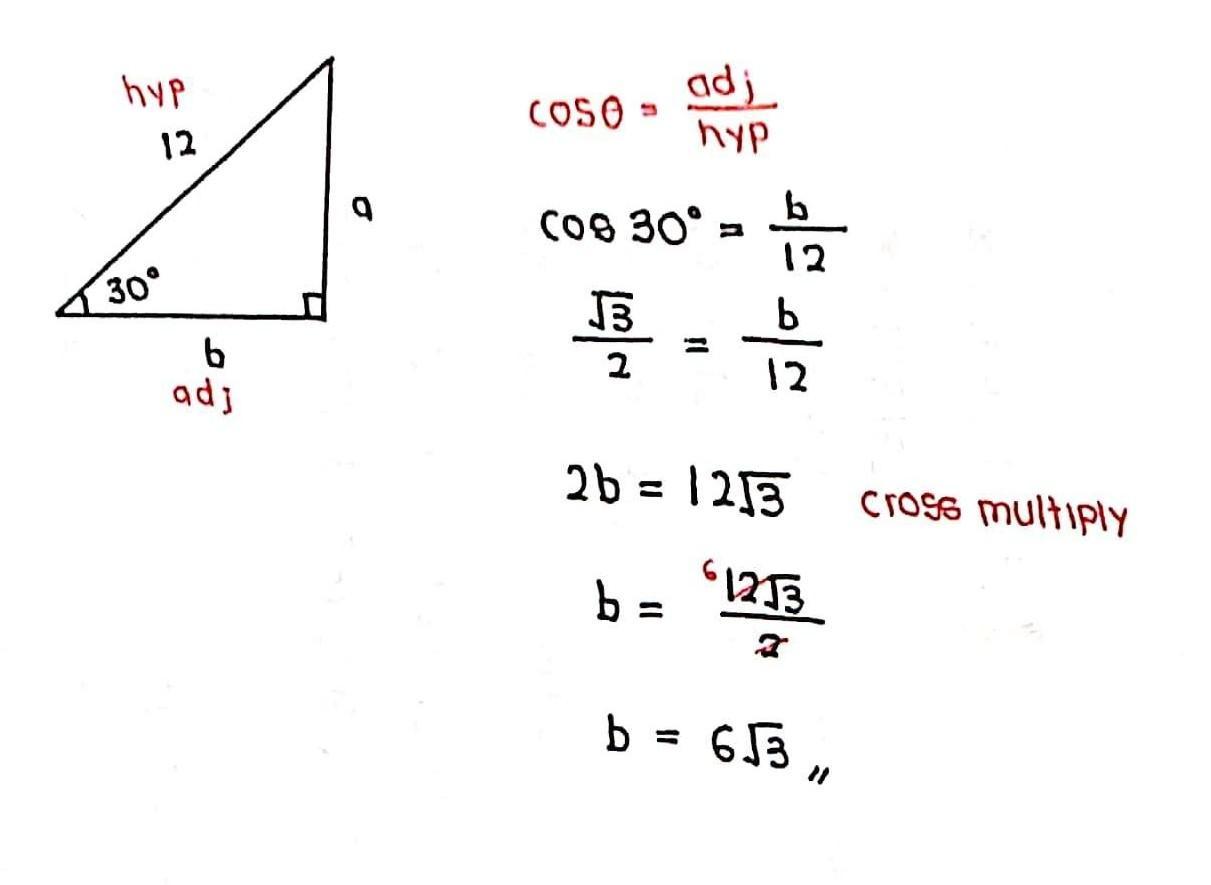 hyp
12
a
30°
b
adj
cosθ = adj/hyp
cos 30° = b/12
√3/2 = b/12
2b = 12√3 cross multiply
b = 6 12√3/2
b = 6√3 〃